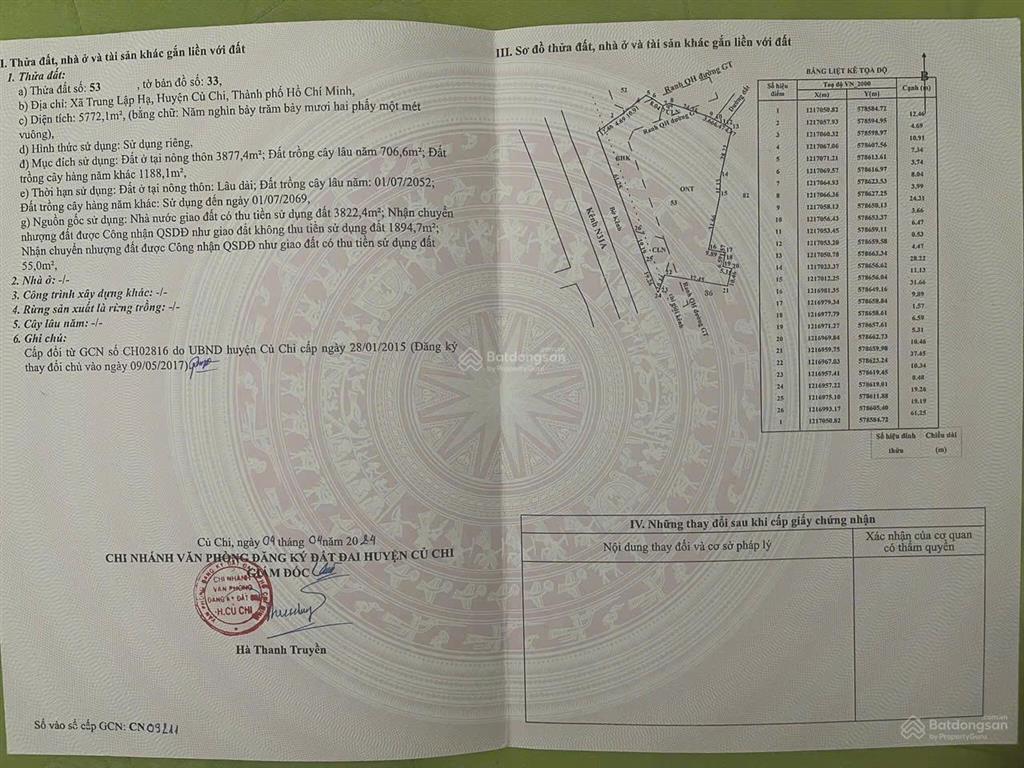 I. Thửa đất, nhà ở và tài sản khác gắn liền với đất
1. Thửa đất:
a) Thửa đất số: 53 , tờ bản đồ số: 33,
b) Địa chỉ: Xã Trung Lập Hạ, Huyện Củ Chi, Thành phố Hồ Chí Minh,
c) Diện tích: 5772,1m², (bằng chữ: Năm nghìn bảy trăm bảy mươi hai phẩy một mét
vuông),
d) Hình thức sử dụng: Sử dụng riêng,
đ) Mục đích sử dụng: Đất ở tại nông thôn 3877,4m²; Đất trồng cây lâu năm 706,6m²; Đất
trồng cây hàng năm khác 1188,1m²,
e) Thời hạn sử dụng: Đất ở tại nông thôn: Lâu dài; Đất trồng cây lâu năm: 01/07/2052;
Đất trồng cây hàng năm khác: Sử dụng đến ngày 01/07/2069,
g) Nguồn gốc sử dụng: Nhà nước giao đất có thu tiền sử dụng đất 3822,4m²; Nhận chuyển
nhượng đất được Công nhận QSDĐ như giao đất không thu tiền sử dụng đất 1894,7m²;
Nhận chuyển nhượng đất được Công nhận QSDĐ như giao đất có thu tiền sử dụng đất
55,0m²,
2. Nhà ở: -/-
3. Công trình xây dựng khác: -/-
4. Rừng sản xuất là rừng trồng: -/-
5. Cây lâu năm: -/-
6. Ghi chú:
Cấp đổi từ GCN số CH02816 do UBND huyện Củ Chi cấp ngày 28/01/2015 (Đăng ký
thay đổi chủ vào ngày 09/05/2017)
Củ Chi, ngày 09 tháng 04 năm 2024
CHI NHÁNH VĂN PHÒNG ĐĂNG KÝ ĐẤT ĐAI HUYỆN CỦ CHI
GIÁM ĐỐC
CHI NHÁNH
VĂN PHÒNG
ĐĂNG KÝ ĐẤT ĐAI
H.CỦ CHI
Hà Thanh Truyền
Số vào sổ cấp GCN: CN 09211
III. Sơ đồ thửa đất, nhà ở và tài sản khác gắn liền với đất
B
52
Ranh QH đường GT
Đường đất
CLN
Ranh QH đường GT
BHK
ONT
53
82
Kênh N31A
Bờ Kênh
CLN
36
Ranh QH đường GT
BẢNG LIỆT KÊ TỌA ĐỘ
Số hiệu điểm Toạ độ VN_2000 Cạnh (m)
X(m) Y(m)
1 1217050.82 578584.72
12.46
2 1217057.93 578594.95
4.69
3 1217060.32 578598.97
10.91
4 1217067.06 578607.56
7.34
5 1217071.21 578613.61
3.74
6 1217069.57 578616.97
8.04
7 1217064.93 578623.53
3.99
8 1217066.36 578627.25
24.31
9 1217058.13 578650.13
3.66
10 1217056.43 578653.37
6.47
11 1217053.45 578659.11
0.53
12 1217053.20 578659.58
4.47
13 1217050.78 578663.34
28.22
14 1217023.37 578656.62
11.13
15 1217012.25 578656.04
31.66
16 1216981.35 578649.16
9.89
17 1216979.34 578658.84
1.57
18 1216977.79 578658.61
6.59
19 1216971.27 578657.61
5.31
20 1216969.84 578662.73
10.46
21 1216959.75 578659.98
37.45
22 1216967.03 578623.24
10.34
23 1216957.41 578619.45
0.48
24 1216957.22 578619.01
19.26
25 1216975.10 578611.88
19.19
26 1216993.17 578605.40
61.25
1 1217050.82 578584.72
Số hiệu đỉnh Chiều dài
thửa (m)
IV. Những thay đổi sau khi cấp giấy chứng nhận
Nội dung thay đổi và cơ sở pháp lý
Xác nhận của cơ quan
có thẩm quyền
Batdongsan
by PropertyGuru
Batdongsan
by PropertyGuru